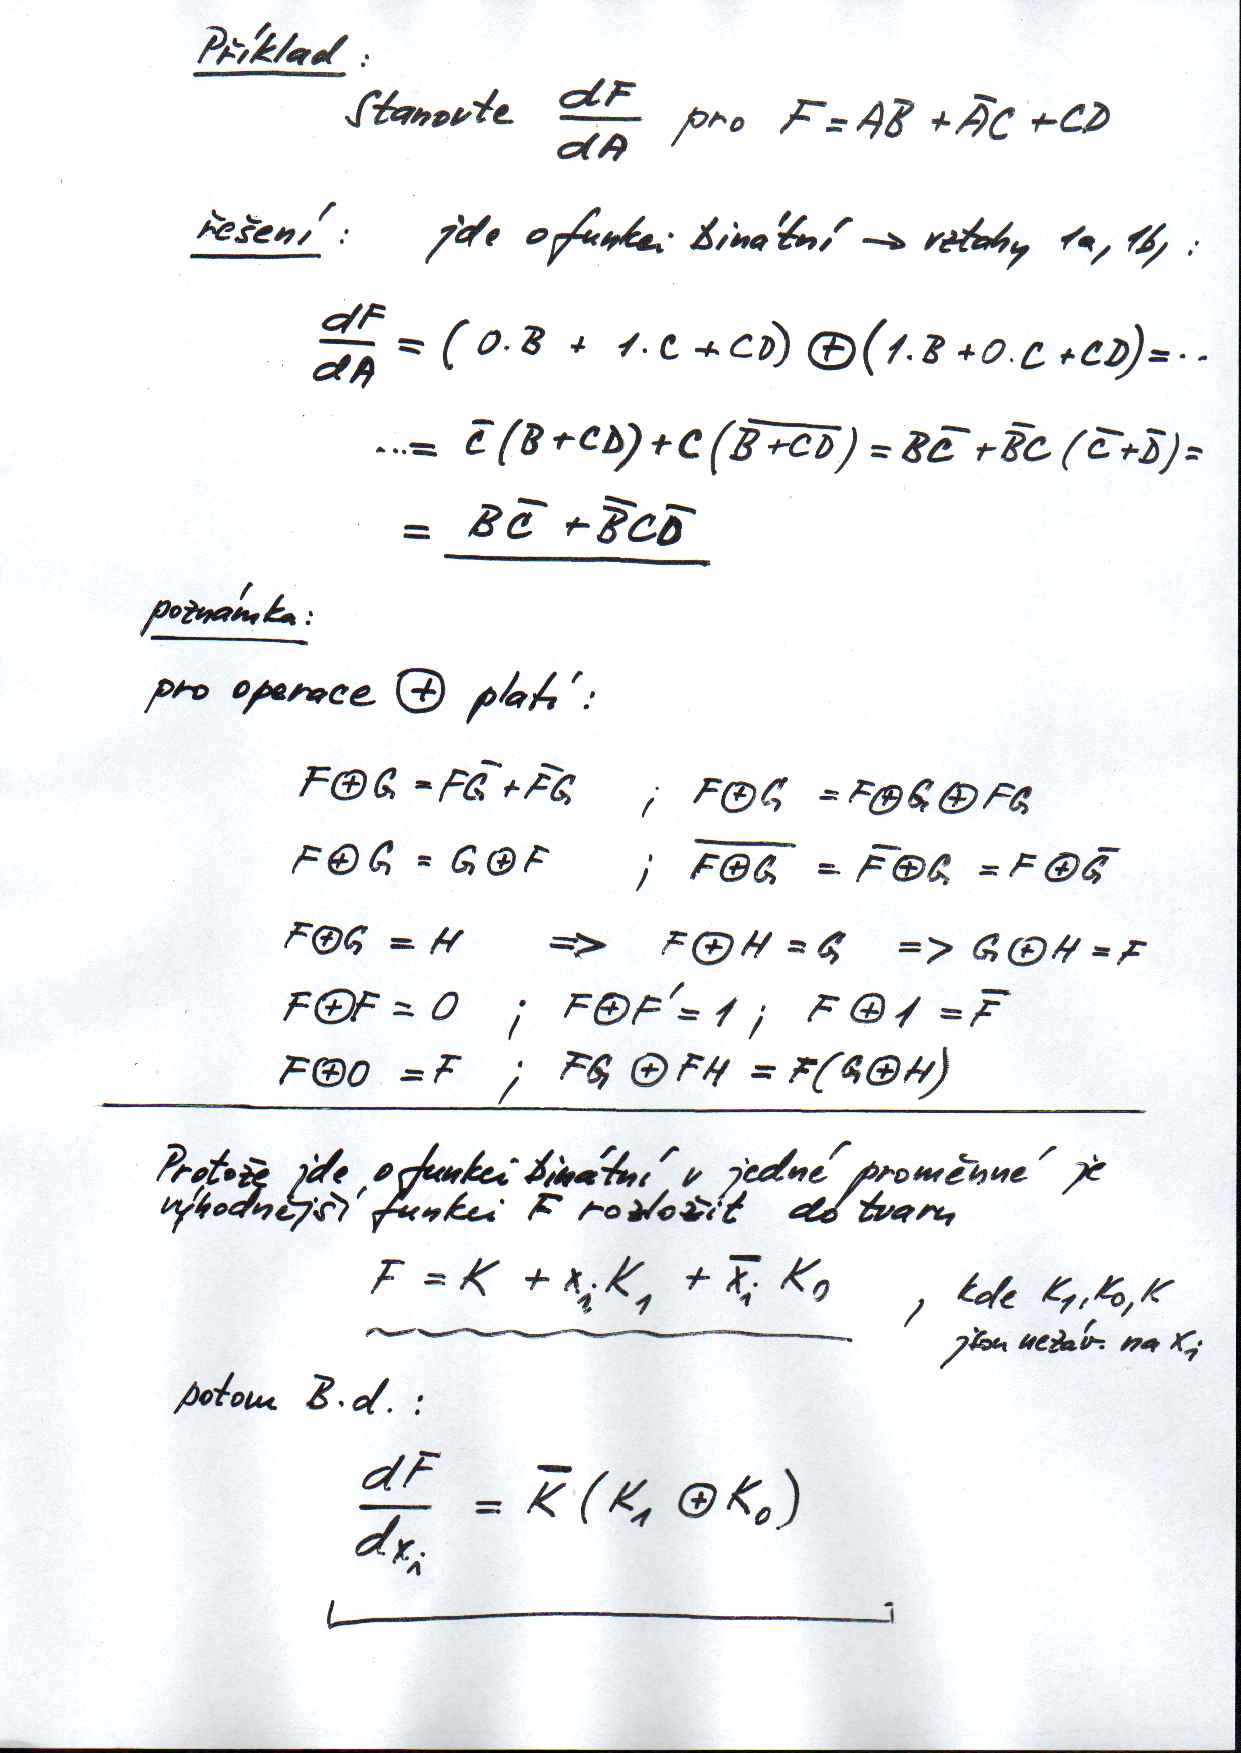 Příklad :
Stanovte dF/dA pro F = AB + A̅C + CD
řešení : jde o funkci binární → vztahy 1a, 1b, :
dF/dA = ( 0.B + 1.C + CD) ⊕ (1.B + 0.C + CD) = ..
...= C̅ (B+CD) + C (B̅+̅C̅D̅) = BC̅ + B̅C (C̅+D̅) =
= BC̅ + B̅CD̅
poznámka :
pro operace ⊕ platí :
F⊕G = FG̅ + F̅G ; F⊕G = F⊕G⊕FG
F⊕G = G⊕F ; F̅⊕̅G̅ = F̅⊕G = F⊕G̅
F⊕G = H => F⊕H = G => G⊕H = F
F⊕F = 0 ; F⊕F' = 1 ; F⊕1 = F̅
F⊕0 = F ; FG ⊕ FH = F(G⊕H)
Protože jde o funkci binární v jedné proměnné je
výhodnější funkci F rozložit do tvaru
F = K + xᵢK₁ + x̅ᵢ K₀ , kde K₁, K₀, K
jsou nezáv. na xᵢ
potom B.d. :
dF/dxᵢ = K̅ (K₁ ⊕ K₀)